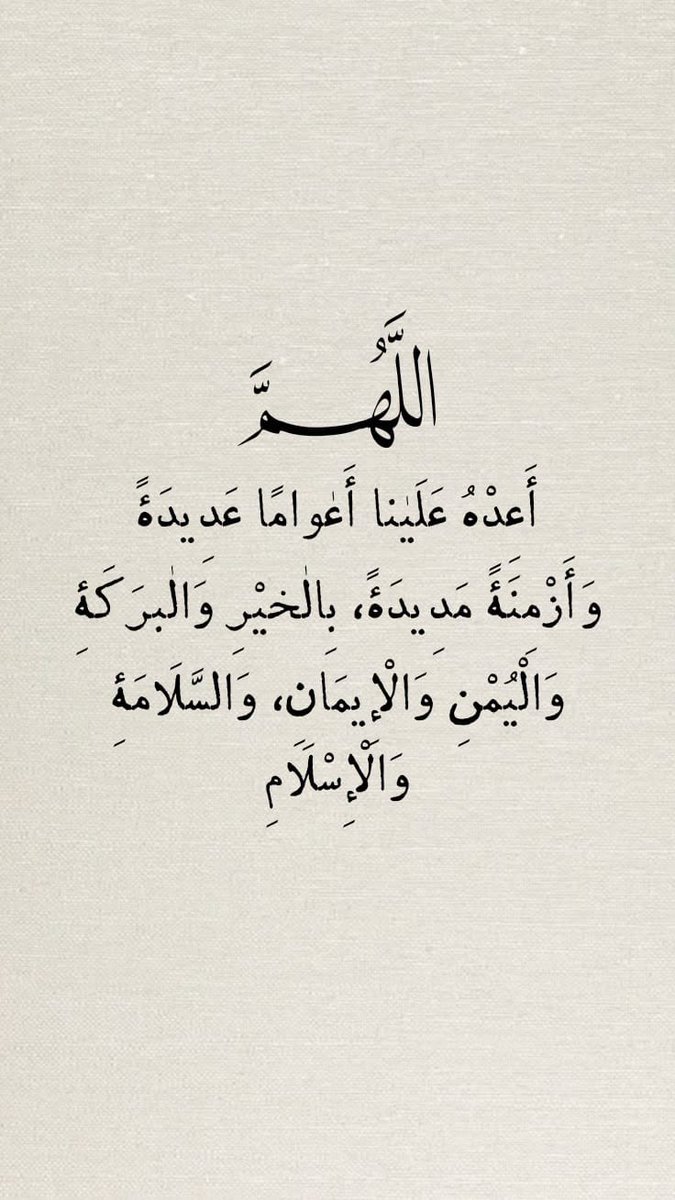 اللَّهُمَّ
أَعدْهُ عَلَيْنا أَعْوامًا عَدِيدَةً
وَأَزْمِنَةً مَدِيدَةً، بِالْخيْرِ وَالْبرَكَةِ
وَالْيُمْنِ وَالْإيمَانِ، وَالسَّلَامَةِ
وَالْإِسْلَامِ